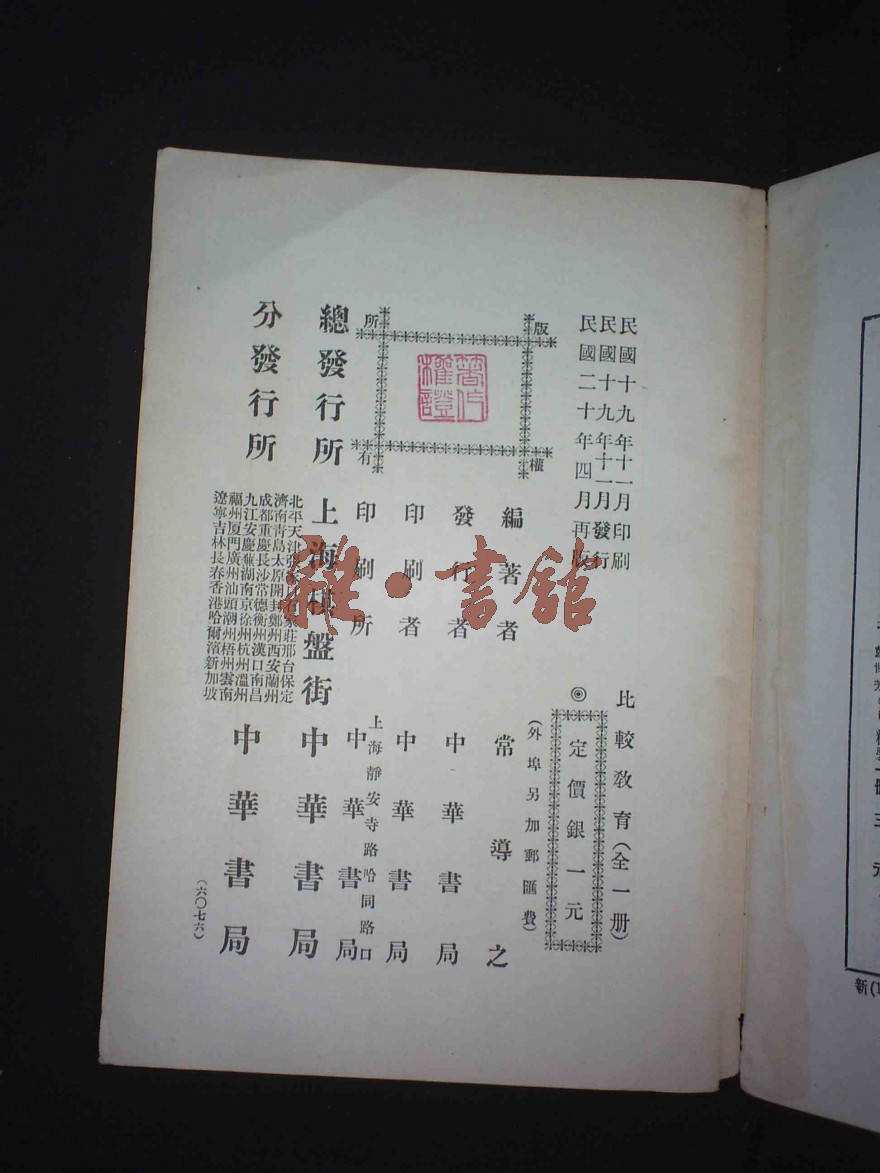 民國十九年十一月印刷
民國十九年十一月發行
民國二十年四月再版
比較敎育(全一册)
◎定價銀一元
(外埠另加郵匯費)
版權所有
著作權證
編著者 常導之
發行者 中華書局
印刷者 中華書局
印刷所 上海靜安寺路哈同路口 中華書局
總發行所 上海棋盤街 中華書局
分發行所
北平天津張 石家莊邢台保定
濟南靑島太原開封鄭州西安蘭州
成都重慶長沙常德衡州漢口南昌
九江安慶蕪湖南京徐州杭州溫州
福州厦門廣州汕頭潮州梧州雲南
遼寧吉林長春香港哈爾濱新加坡
中華書局
(六〇七六)
雜·書舘
新(1